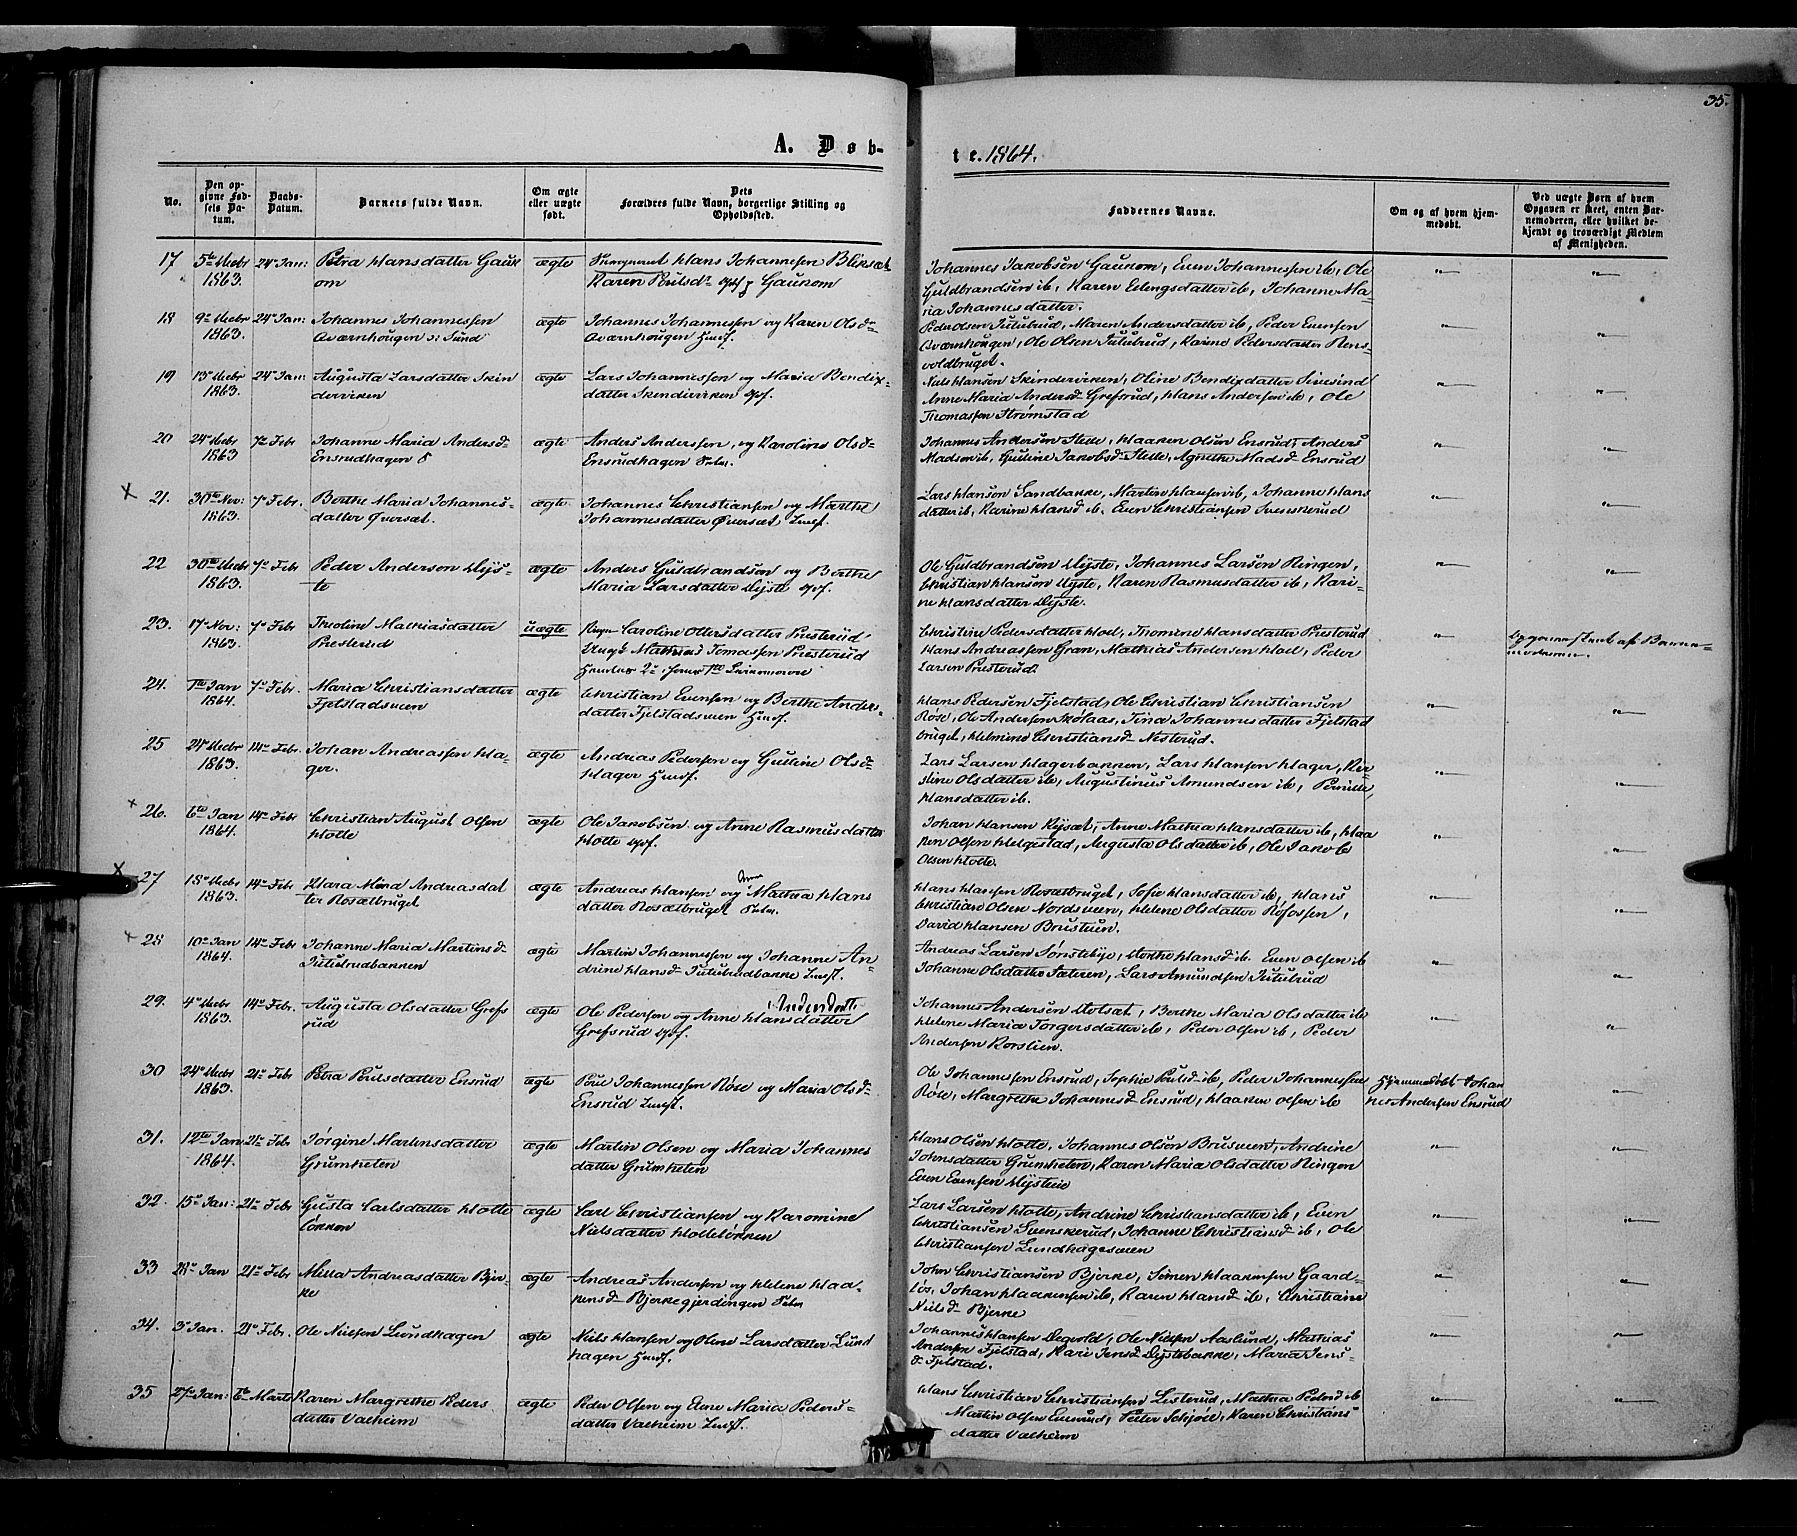 35.
A. Døb-
te. 1864.
No.
Den op-
givne Fød-
sels Da-
tum.
Daabs-
Datum.
Barnets fulde Navn.
Om ægte
eller uægte
født.
Dets
Forældres fulde Navn, borgerlige Stilling og
Opholdssted.
Faddernes Navne.
Om og af hvem hjem-
medøbt.
Ved uægte Børn af hvem
Opgaven er skeet, enten Bar-
nemoderen, eller hvilket be-
kjendt og troværdigt Medlem
af Menigheden.
17 5te Decbr 24de Jan: Petra Hansdatter Gauk ægte Hans Johannesen Bliksæt
1863. om Karen Poulsdr Gaukom
Johannes Jakobsen Gaukom, Even Johannessen ib, Ole
Guldbrandsen ib, Karen Erlengsdatter ib, Johanne Ma-
ria Johannesdatter.
18 9de Decbr 24de Jan: Johannes Johannessen ægte Johannes Johannessen og Karen Olsdr
1863. Kværnhougen Sund Kværnhougen Husf.
Peder Olsen Tutubrud, Maren Andersdatter ib, Peder Evensen
Kværnhougen, Ole Olsen Tutubrud, Karine Pedersdatter Rens-
voldbruget.
19 13de Decbr 24de Jan: Augusta Larsdatter Skin ægte Lars Johannessen og Maria Bendix-
1863. derviken datter Skinderviken
Niels Hansen Skinderviken, Oline Bendixdatter Sivesind
Anne Maria Andersd Grefsrud, Hans Andersen ib, Ole
Thomassen Strømstad
20 24de Decbr 7de Febr Johanne Maria Andersd- ægte Anders Anderssen, og Karoline Olsd-
1863 Ensrudhagen Ensrudhagen
Johannes Andersen Stette, Haaken Olsen Ensrud, Anders
Madsen ib, Gustine Jakobsd Stette, Agnethe Madsd Ensrud
21. 30te Nov: 7de Febr. Berthe Maria Johannes- ægte Johannes Christiansen og Marthe
1863. datter Øversæt. Johannesdatter Øversæt,
Lars Hansen Sandbakke, Martin Hansen ib, Johanne Hans
datter ib, Karine Hansd ib, Even Christiansen Svenskerud
22 30te Decbr 7de Febr Peder Andersen Dys- ægte Anders Guldbrandsen og Berthe
1863. te Maria Larsdatter Dyste
Ole Guldbrandsen Dyste, Johannes Larsen Ringen,
Christian Hansen Dyste, Karen Rasmusdatter ib, Kari-
ne Hansdatter Dyste.
23. 17de Nov: 7de Febr Theoline Mathiasdatter uægte Caroline Ottersdatter Presterud
1863. Presterud Ungk Mathias Tomassen Presterud
Christine Pedersdatter Hoel, Thomine Hansdatter Presterud
Hans Andreassen Gran, Mathias Andersen Hoel, Peder
Larsen Presterud.
24. 1ste Jan 7de Febr. Maria Christiansdatter ægte Christian Evensen og Berthe Anders-
1864. Fjelstadsveen datter Fjelstadsveen Husf.
Hans Pedersen Fjelstad, Ole Christian Christiansen
Røse, Ole Andersen Skølaas, Tina Johannesdatter Fjelstad
bruget, Helmine Christiansd Nesterud.
25 24de Decbr 14de Febr. Johan Andreassen Ha- ægte Andreas Pedersen og Gustine Olsd-
1863. ger. Hager Husf.
Lars Larsen Hagerbakken, Lars Hansen Hager, Ker-
stine Olsdatter ib, Augustinus Amundsen ib, Pernille
Hansdatter ib.
26. 6te Jan 14de Febr Christian August Olsen ægte Ole Jakobsen og Anne Rasmusdatter
1864. Hotte Hotte
Johan Hansen Rysæt, Anne Mathea Hansdatter ib, Haa
ken Olsen Helgestad, Augusta Olsdatter ib, Ole Jakob
Olsen Hotte.
27 18de Decbr 14de Febr. Klara Mina Andreasdat ægte Andreas Hansen og Anne Mathea Hans
1863. ter Rosætbruget datter Rosætbruget
Hans Hansen Rosætbruget, Sofie Hansdatter ib, Hans
Christian Olsen Nordsveen, Helene Olsdatter Røfossen,
David Hansen Brustuen.
28 10de Jan 14de Febr Johanne Maria Martinsd- ægte Martin Johannessen og Johanne An-
1864. Tutubrudbakken drine Hansd Tutubrudbakke
Andreas Larsen Sønsteby, Marthe Hansd ib. Even Olsen ib
Johanne Olsdatter Sæteren, Lars Amundsen Tutubrud
29. 4de Decbr 14de Febr. Augusta Olsdatter Grefs ægte Ole Pedersen og Anne Hansdatter
1863. rud Grefsrud
Johannes Andersen Motsæt, Berthe Maria Olsdatter ib
Helene Maria Torgersdatter ib, Peder Olsen ib, Peder
Andersen Korslien.
30 24de Decbr 21de Febr Petra Poulsdatter Ensrud ægte Poul Johannessen Røse og Maria Olsd-
1863. Ensrud
Ole Johannessen Ensrud, Sophie Poulsd ib, Peder Johannessen Hjemmedøbt Johan
Røse, Margrethe Johannesd Ensrud, Haaken Olsen ib nes Andersen Ensrud
31. 12te Jan 21de Febr Jørgine Martinsdatter ægte Martin Olsen og Maria Johannes
1864. Grumheten datter Grumheten
Hans Olsen Hotte, Johannes Olsen Brusveen, Andrine
Johnsdatter Grumheten, Karen Maria Olsdatter Ringen
Even Evensen Dysteie
32. 15de Jan: 21de Febr Gusta Carlsdatter Hotte ægte Carl Christiansen og Karomine
løkken Nielsdatter Hotteløkken
Lars Larsen Hotte, Andrine Christiansdatter ib, Even
Christiansen Svenskerud, Johanne Christiansd ib, Ole
Christiansen Lundhagesveen
33 28de Jan 21de Febr Milla Andreasdatter Bjer- ægte Andreas Andersen og Helene Haa-
ke kensd- Bjerkegjerdingen
John Christiansen Bjerke, Simen Haakensen Gaard-
løs, Johan Haakensen ib, Karen Hansd ib, Christiane
Nielsd Bjerke
34. 3de Jan. 21de Febr. Ole Nielsen Lundhagen ægte Niels Hansen og Oline Larsdatter Lund
hagen Husf.
Johannes Hansen Degvold, Ole Nielsen Aaslund, Mathias
Andersen Fjelstad, Kari Jensd Dystebakke, Maria Jens-
d- Fjelstad.
35 27de Jan: 6te Marts Karen Margrethe Peders ægte Peder Olsen og Elene Maria Peders-
datter Valheim datter Valheim
Hans Christian Christiansen Listerud, Mathea Pedersd ib
Martin Olsen Ensrud, Peder Schjøll, Karen Christians
datter Valheim